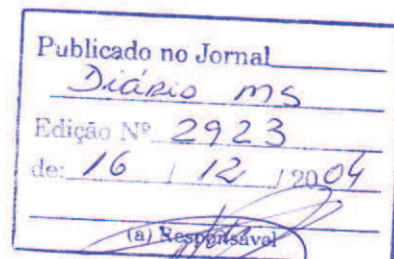 Publicado no Jornal
Diário MS
Edição Nº 2923
de: 16 / 12 / 2004
(a) Responsável